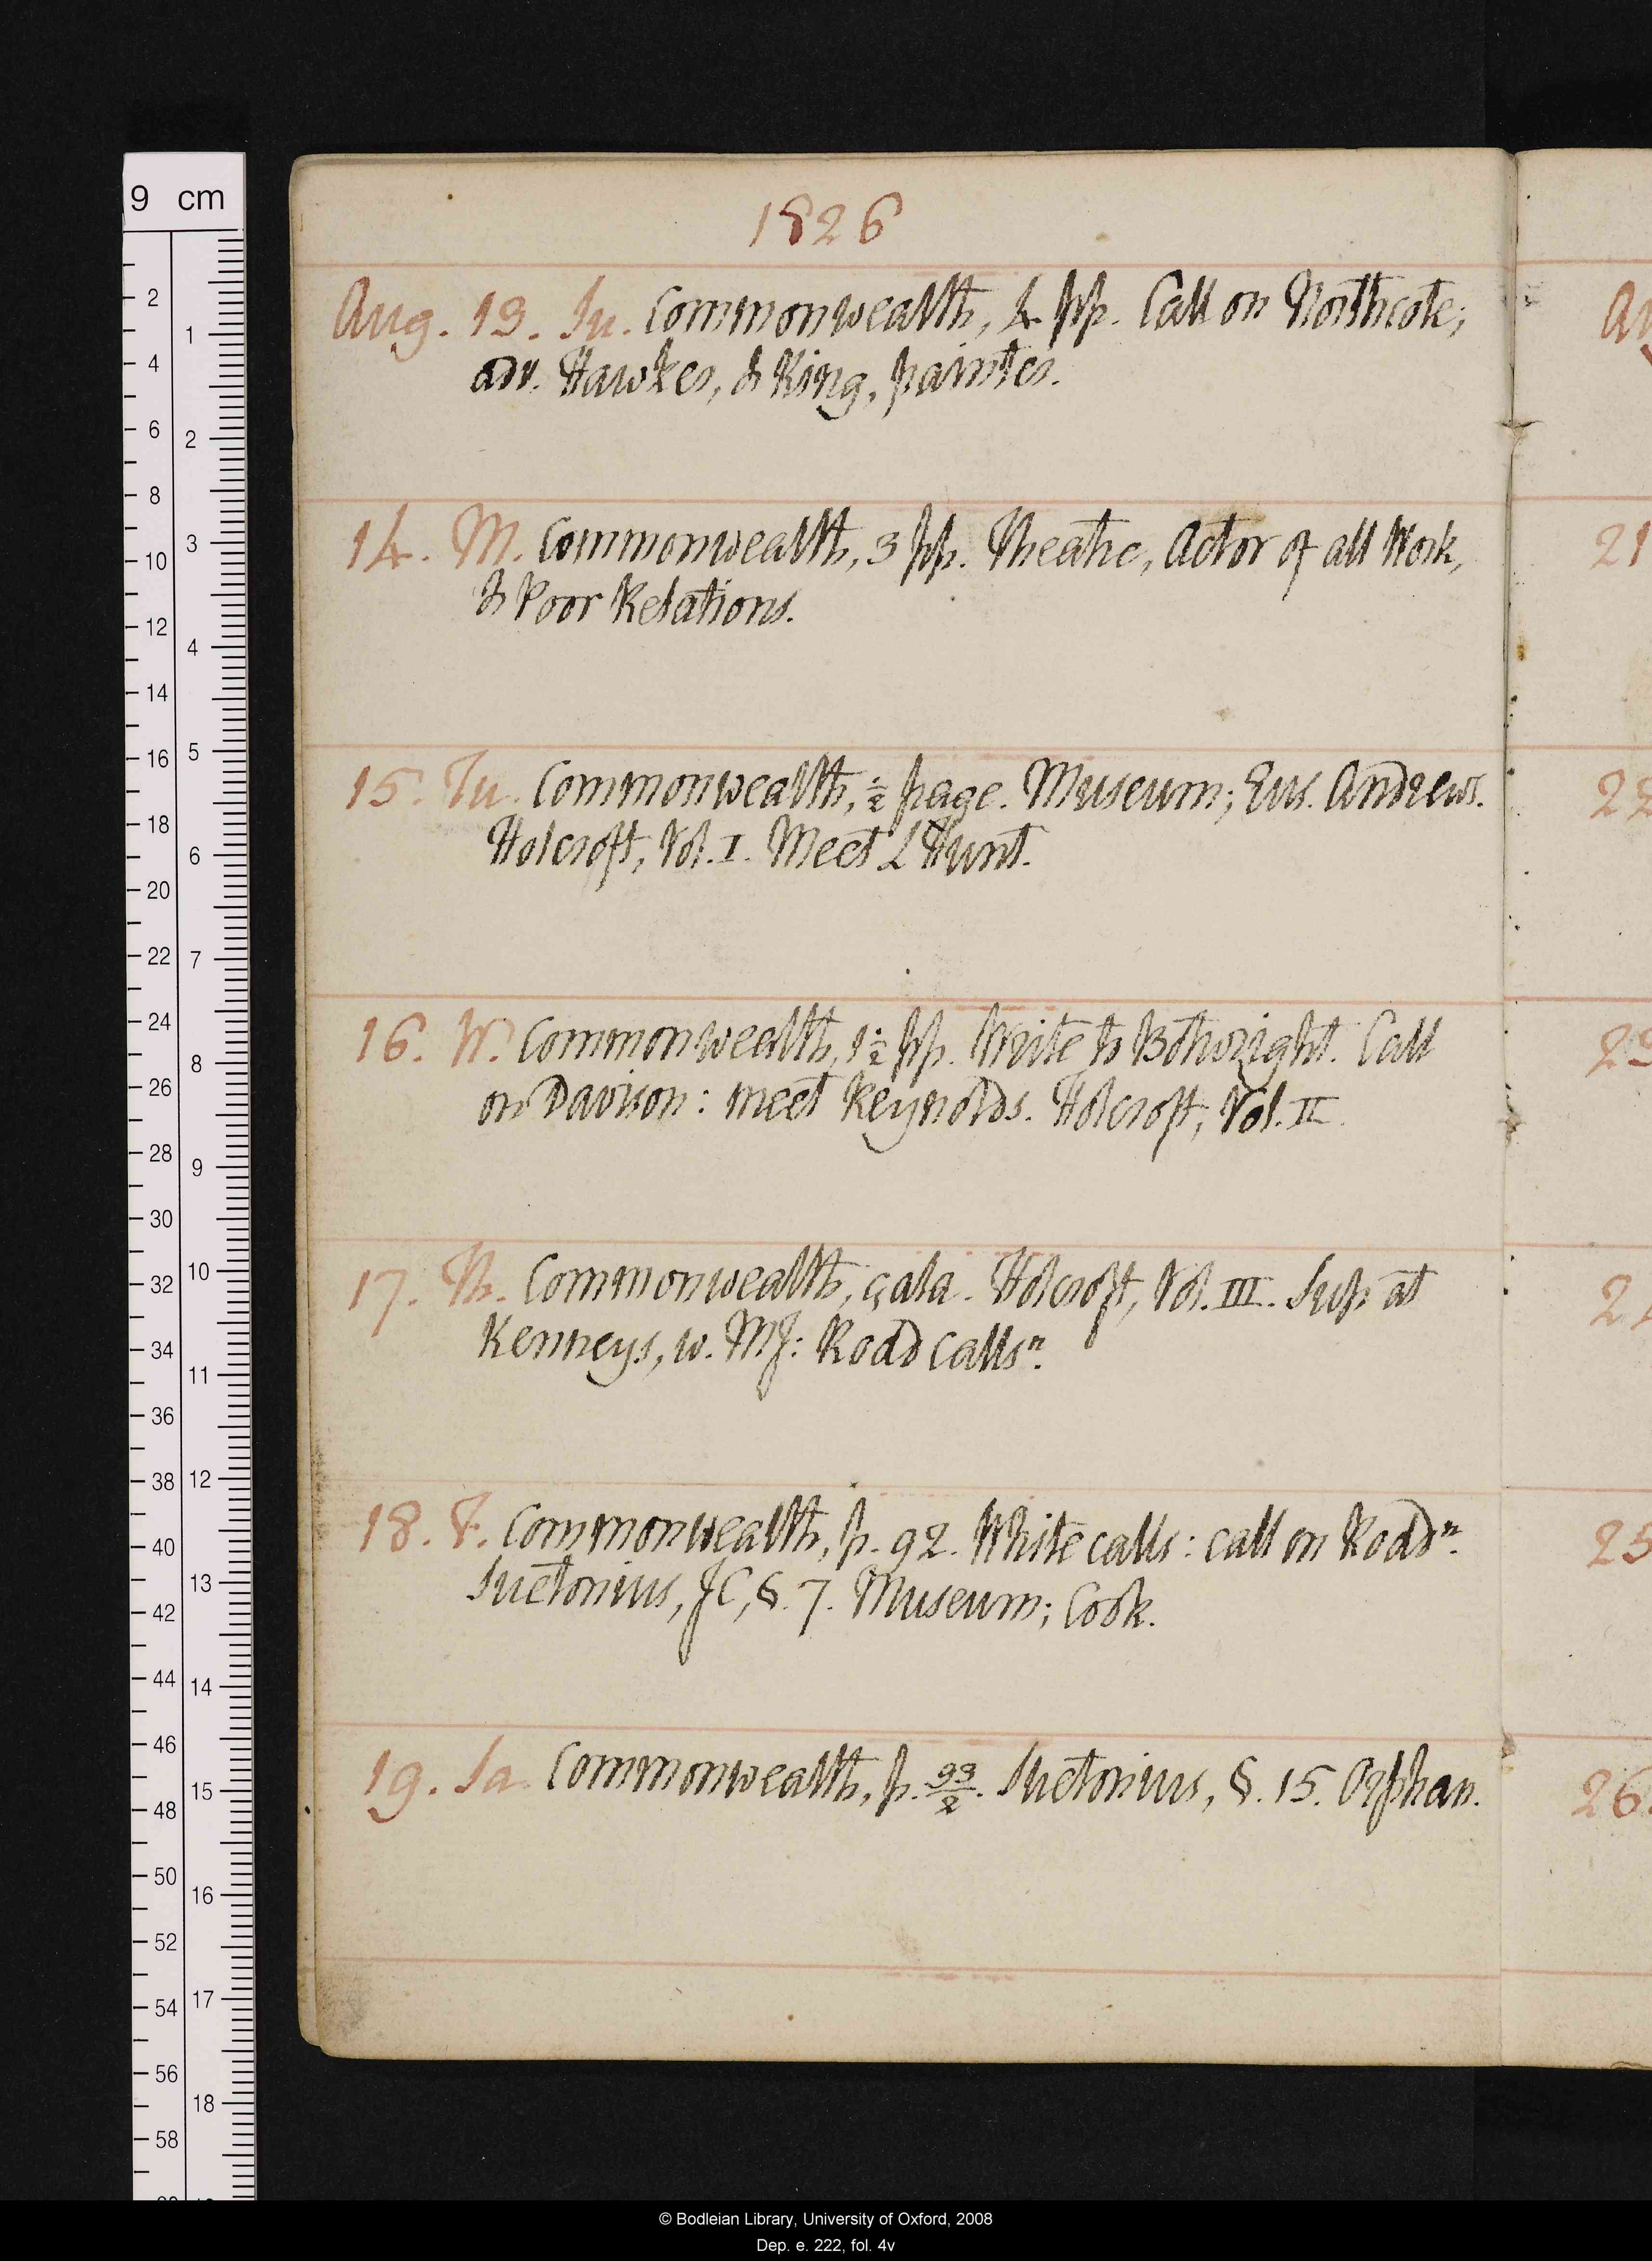 1826
Aug. 13. Su. Commonwealth, 4 pp. Call on Northcote;
adv. Hawkes, & King, painter.
14. M. Commonwealth, 3 pp. Theatre, Actor of all Work,
& Poor Relations.
15. Tu. Commonwealth, ½ page. Museum; Eus. Andrews.
Holcroft, Vol. I. Meet L Hunt.
16. W. Commonwealth, 1½ pp. Write to Bothwright. Call
on Davison: meet Reynolds. Holcroft, Vol. II.
17. Th. Commonwealth, çala. Holcroft, Vol. III. Sup at
Kenneys, w. MJ: Rodd calls n.
18. F. Commonwealth, p. 92. White calls: call on Rodd n.
Suetonius, JC, §. 7. Museum; Cook.
19. Sa. Commonwealth, p. 93/2. Suetonius, §. 15. Orphan.
21
25
26.
9 cm
2 4 6 8 10 12 14 16 18 20 22 24 26 28 30 32 34 36 38 40 42 44 46 48 50 52 54 56 58
1 2 3 4 5 6 7 8 9 10 11 12 13 14 15 16 17 18
© Bodleian Library, University of Oxford, 2008
Dep. e. 222, fol. 4v